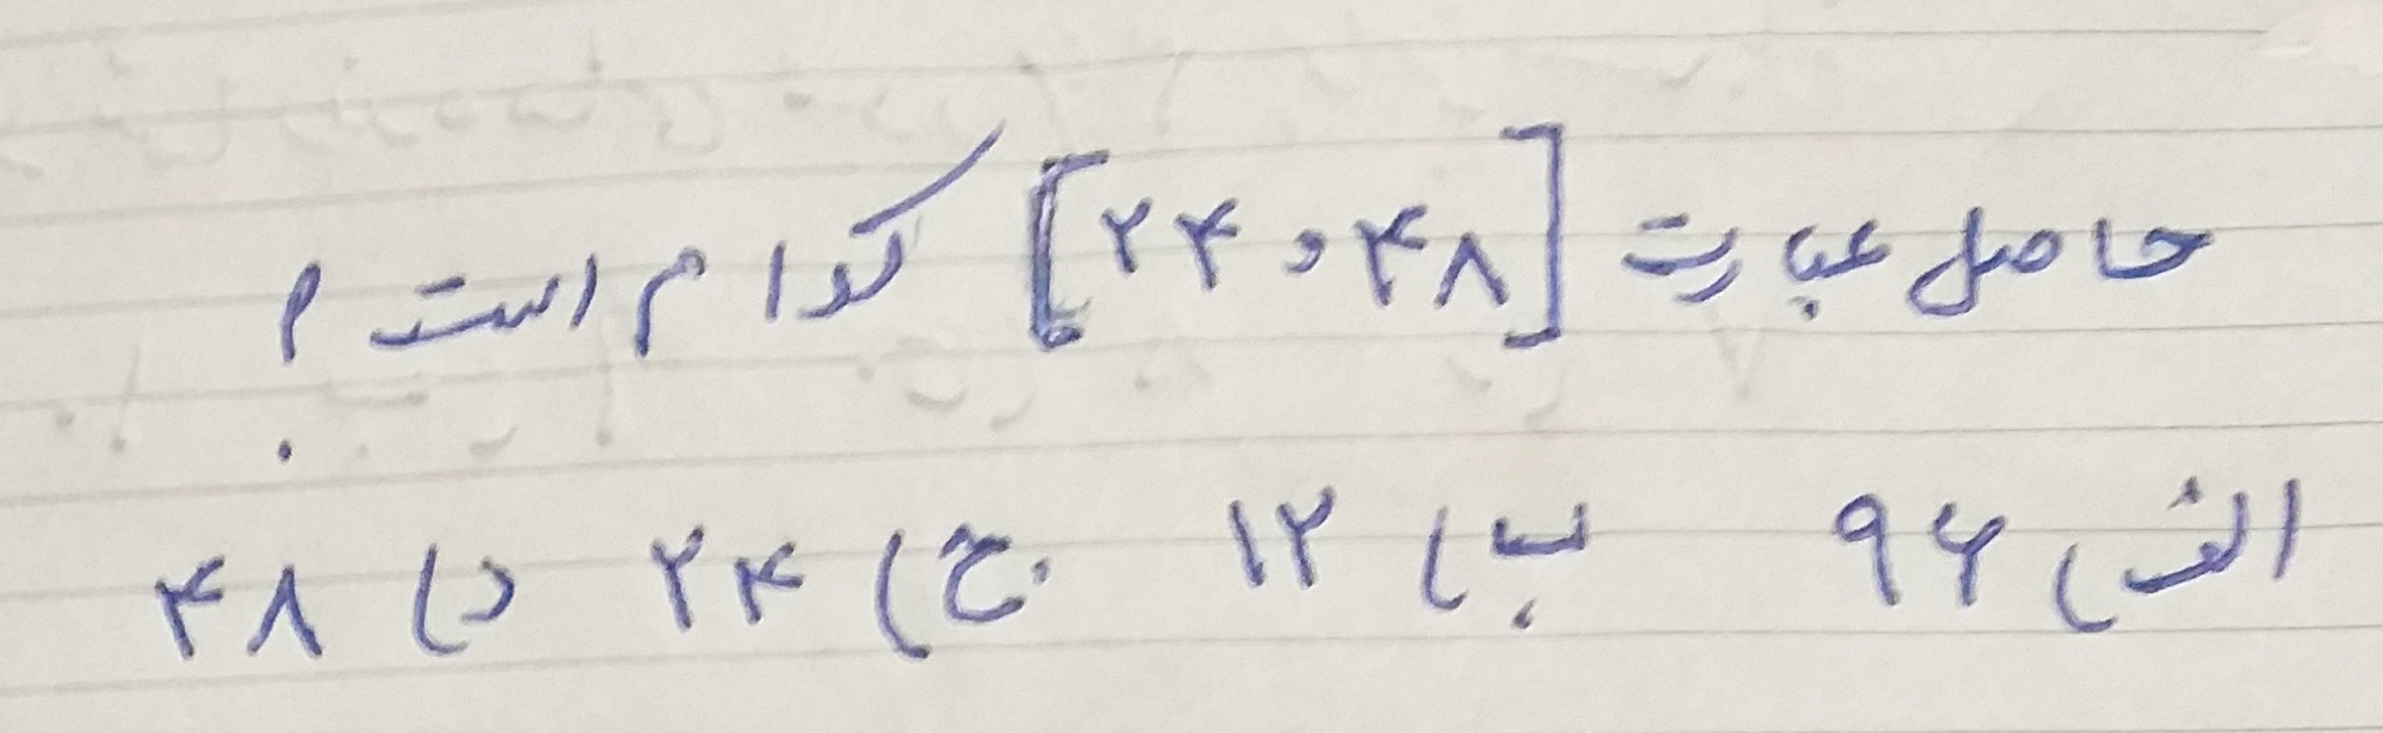 حاصل عبارت [۲۴ و ۴۸] کدام است ؟
الف) ۹۶ ب) ۱۲ ج) ۲۴ د) ۴۸